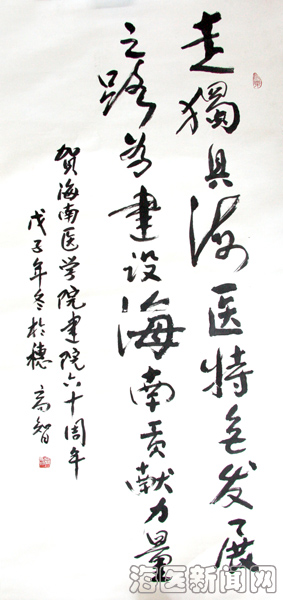 走獨具海医特色发展
之路为建设海南贡献力量
贺海南医学院建院六十周年
戊子年冬於穗 高智
海医新闻网